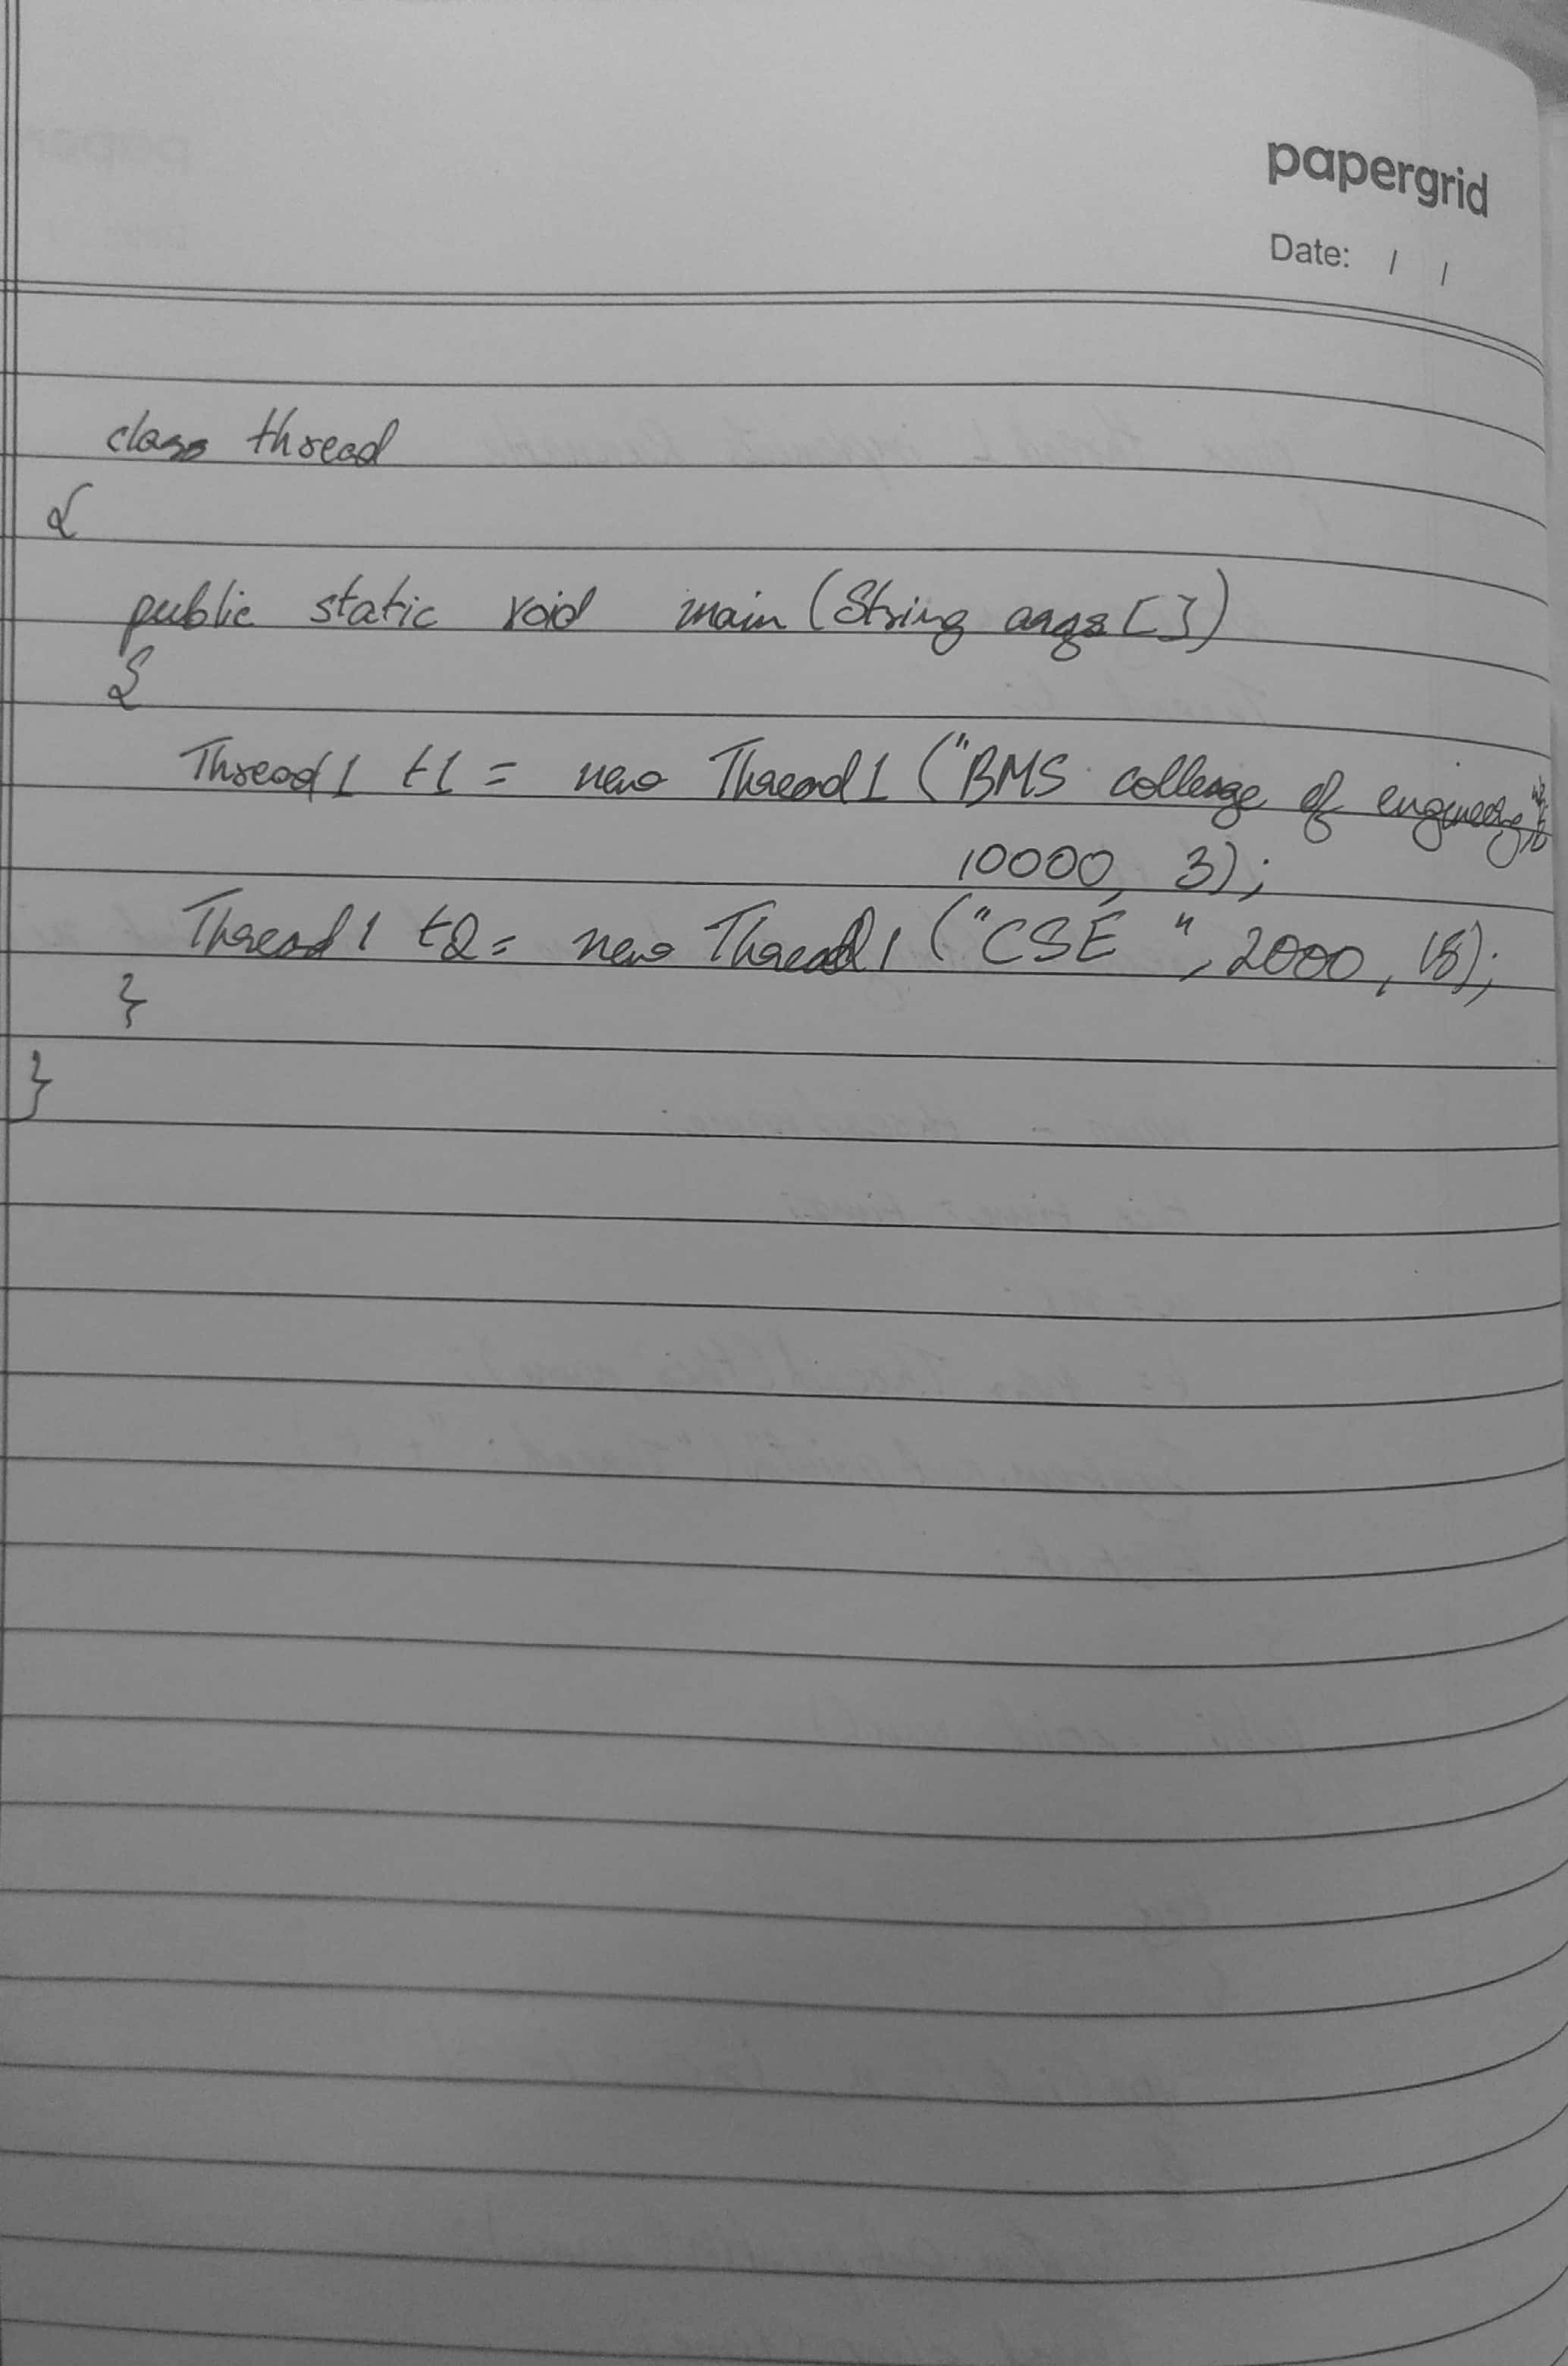 papergrid
Date: / /
class thread
{
public static void main (String args [])
{
Thread1 t1 = new Thread1 ("BMS college of
10000, 3);
Thread1 t2 = new Thread1 ("CSE ", 2000, 15);
}
}